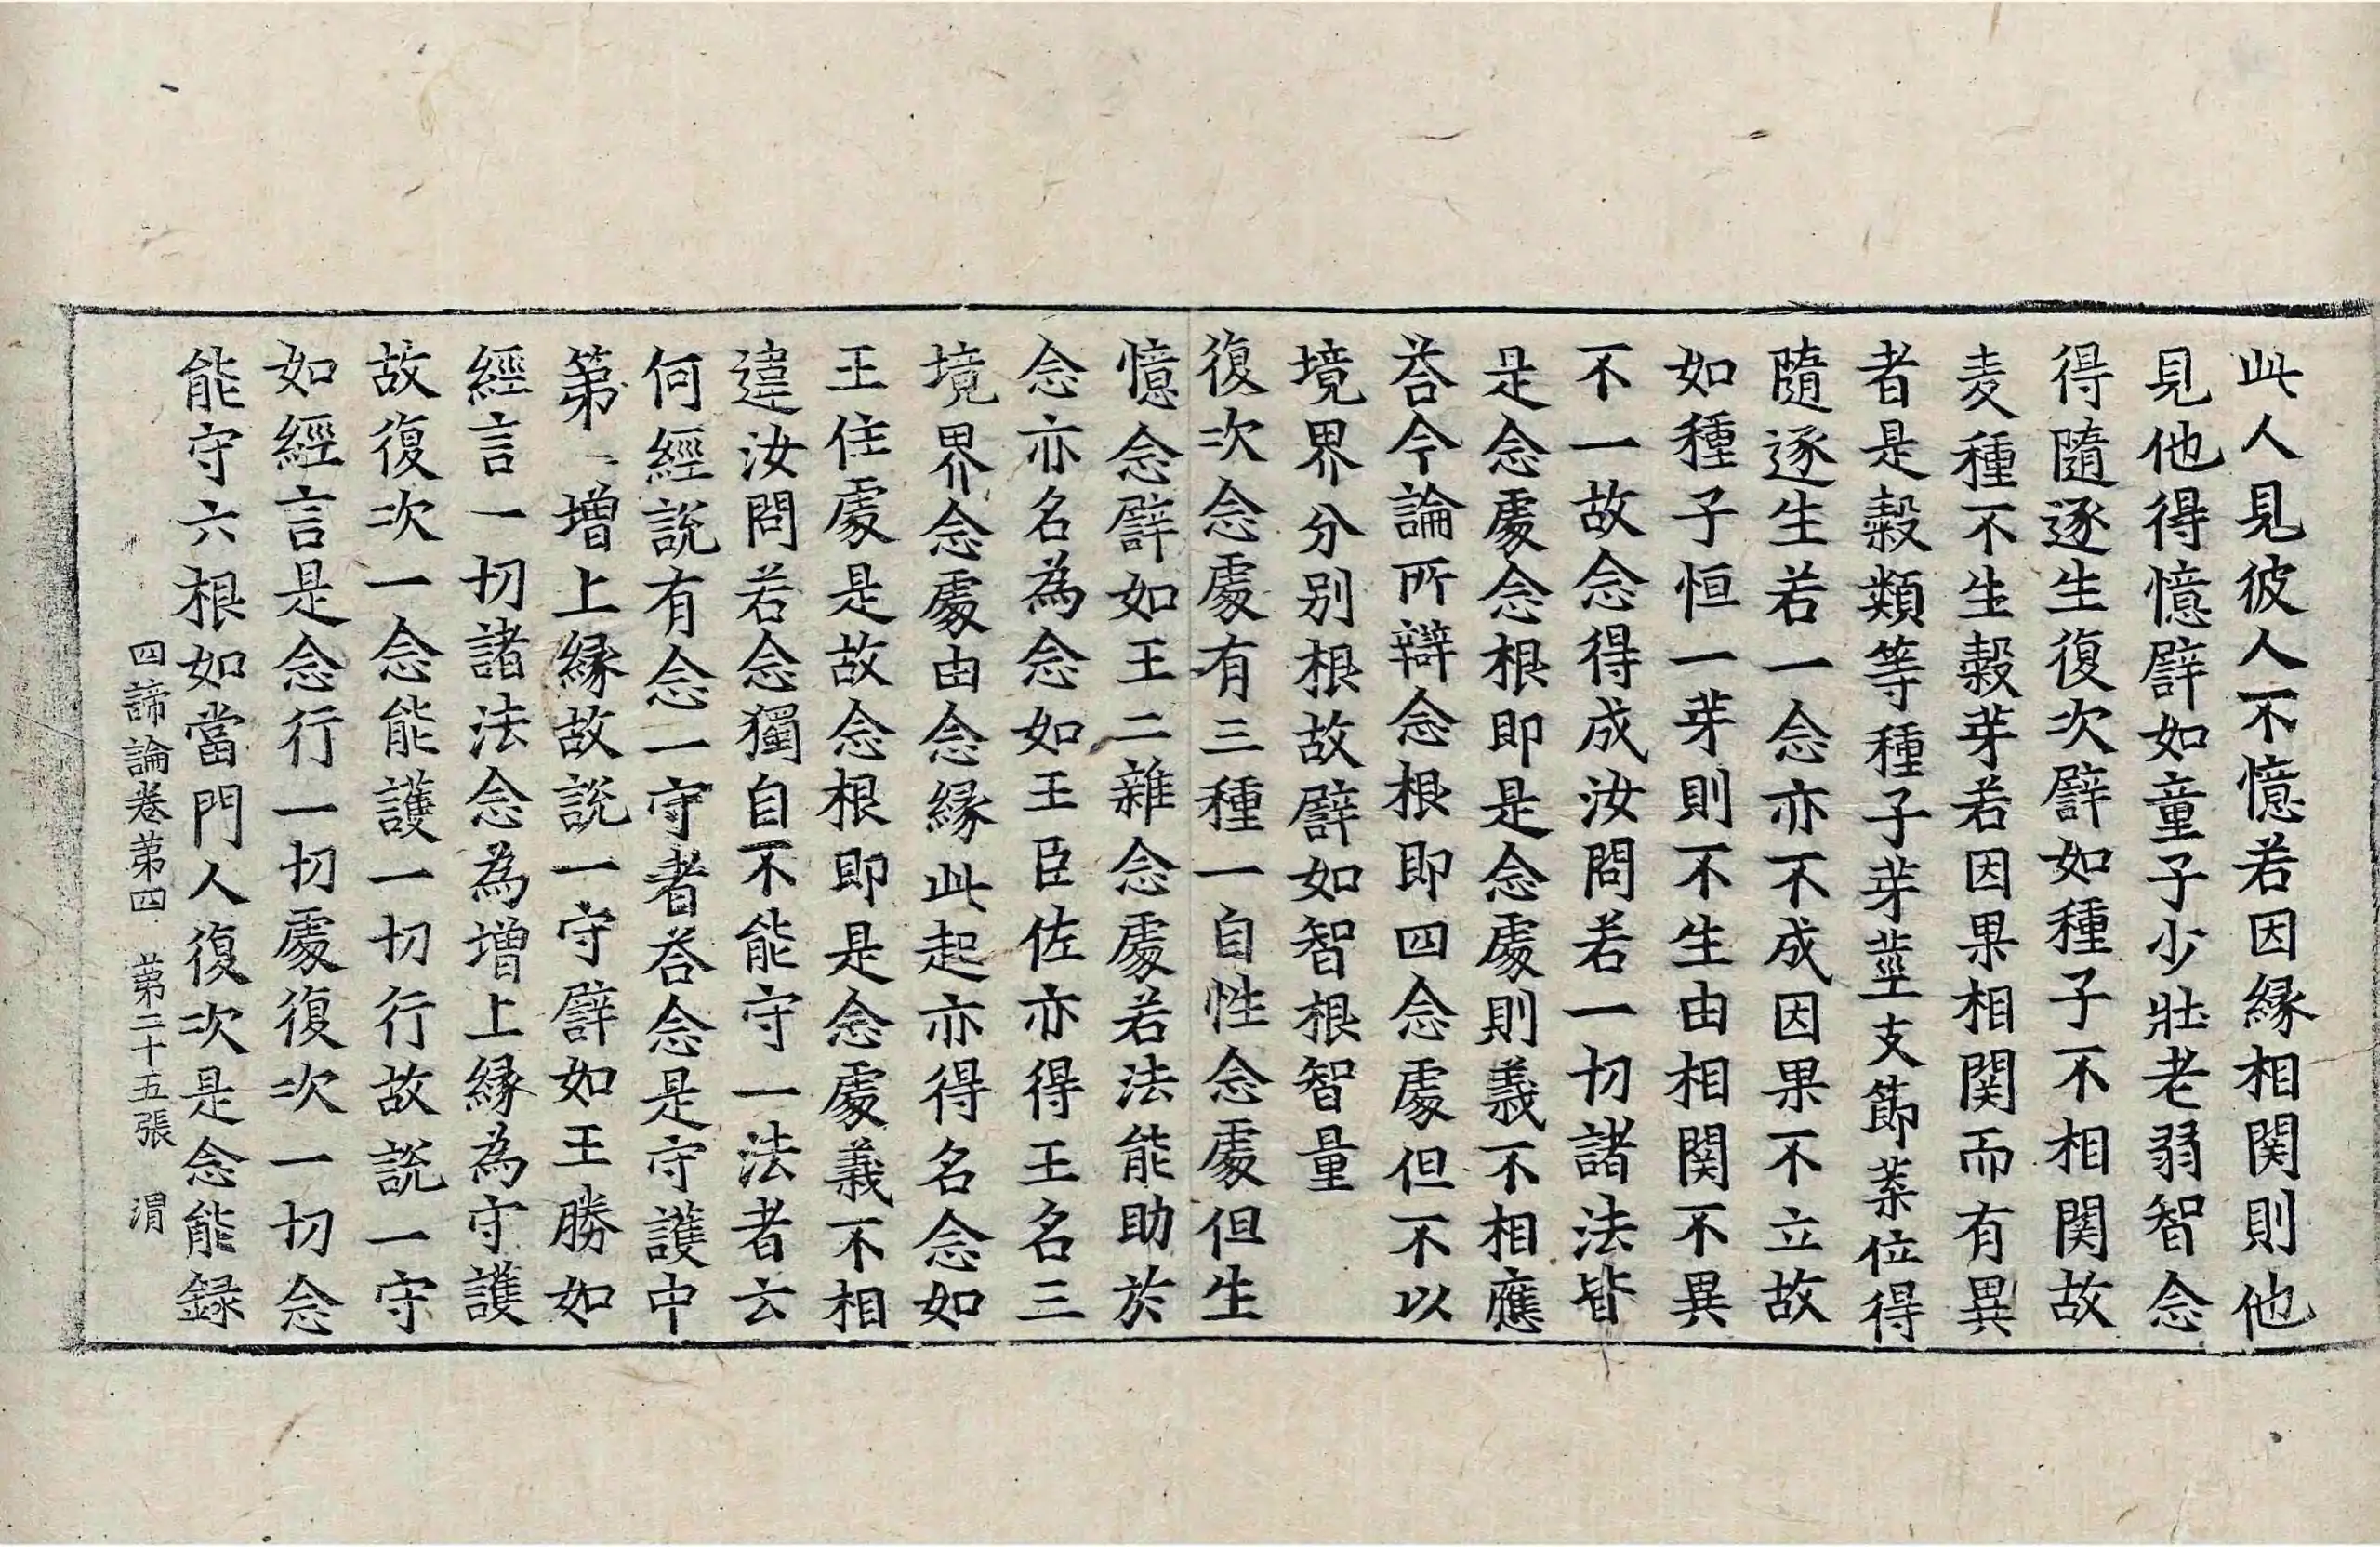 此人見彼人不憶若因縁相関則他
見他得憶譬如童子少壯老弱智念
得隨逐生復次譬如種子不相関故
麦種不生穀芽若因果相関而有異
者是穀類等種子芽莖支節葉位得
隨逐生若一念亦不成因果不立故
如種子恒一芽則不生由相関不異
不一故念得成汝問若一切諸法皆
是念處念根即是念處則義不相應
荅今論所辯念根即四念處但不以
境界分别根故譬如智根智量
復次念處有三種一自性念處但生
憶念譬如王二雜念處若法能助於
念亦名為念如王臣佐亦得王名三
境界念處由念縁此起亦得名念如
王住處是故念根即是念處義不相
違汝問若念獨自不能守一法者云
何經說有念一守者荅念是守護中
第一增上縁故說一守譬如王勝如
經言一切諸法念為增上縁為守護
故復次一念能護一切行故說一守
如經言是念行一切處復次一切念
能守六根如當門人復次是念能録
四諦論卷苐四　苐二十五張　渭